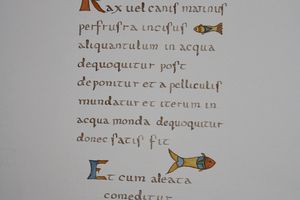 Rax vel canis marinus
per frusta incisus
aliquantulum in acqua
dequoquitur post
deponitur et a pelliculis
mundatur et iterum in
acqua monda dequoquitur
donec satis fit
Et cum aleata
comeditur